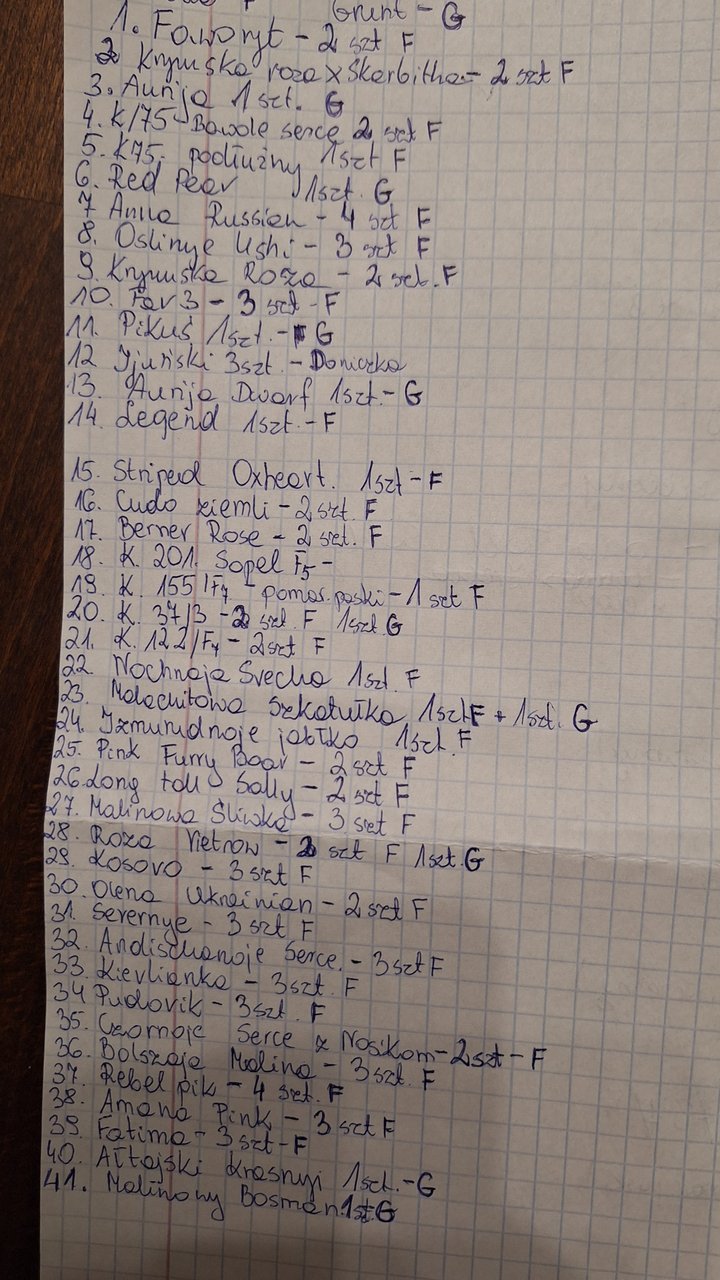 F Grunt - G
1. Faworyt - 2 szt F
2 Krymska roza x Skarbitha - 2 szt F
3. Aurija 1 szt. G
4. K/75 - Bawole serce 2 szt F
5. K75. podłużny 1szt F
6. Red Pear 1szt. G
7 Anna Russian - 4 szt F
8. Oslinye Ushi - 3 szt F
9. Krymska Roza - 2 szt. F
10. Far 3 - 3 szt - F
11. Pikuś 1szt. - G
12 Jjuński 3szt. - Doniczka
13. Aurija Dwarf 1szt. - G
14. Legend 1szt. - F
15. Striped Oxheart. 1szt - F
16. Cudo ziemli - 2 szt. F
17. Berner Rose - 2 szt. F
18. K. 201. Sopel F5 -
19. K. 155/F4 - pomar. paski - 1 szt F
20. K. 37/3 - 2 szt. F 1szt. G
21. K. 122/F4 - 2szt F
22. Nochnaja Svecha 1szt. F
23. Malachitowa Szkatułka 1szt F + 1szt. G
24. Izmurudnoje jabłko 1szt. F
25. Pink Furry Boar - 2 szt F
26. Long tall Sally - 2 szt F
27. Malinowa Śliwka - 3 szt F
28. Roza Vietrow - 2 szt F 1szt. G
29. Kosovo - 3 szt F
30. Olena Ukrainian - 2 szt F
31. Severnye - 3 szt F
32. Andischanoje Serce. - 3 szt F
33. Kievlianka - 3szt. F
34 Pudovik - 3szt. F
35. Czornoje Serce z Noskom - 2szt - F
36. Bolszaja Malina - 3 szt. F
37. Rebel pik - 4 szt. F
38. Amana Pink - 3 szt F
39. Fatima - 3 szt - F
40. Ałtajski Krasnyi 1szt. - G
41. Malinowy Bosman 1szt G